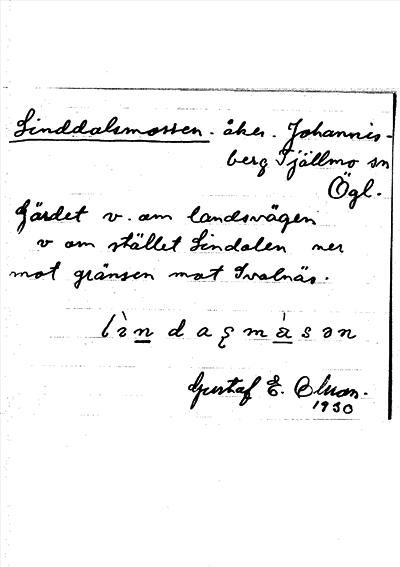 Linddalsmossen. åker. Johannis-
berg Tjällmo sn
Ögl.
Gärdet v. om landsvägen
v om stället Lindalen ner
mot gränsen mot
Gustaf E.
1930